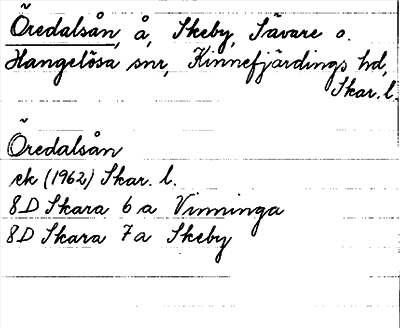 Öredalsån, å, Skeby, Sävare o.
Hangelösa snr, Kinnefjärdings hd,
Skar. l.
Öredalsån
ek (1962) Skar. l.
8D Skara 6a Vinninga
8D Skara 7a Skeby